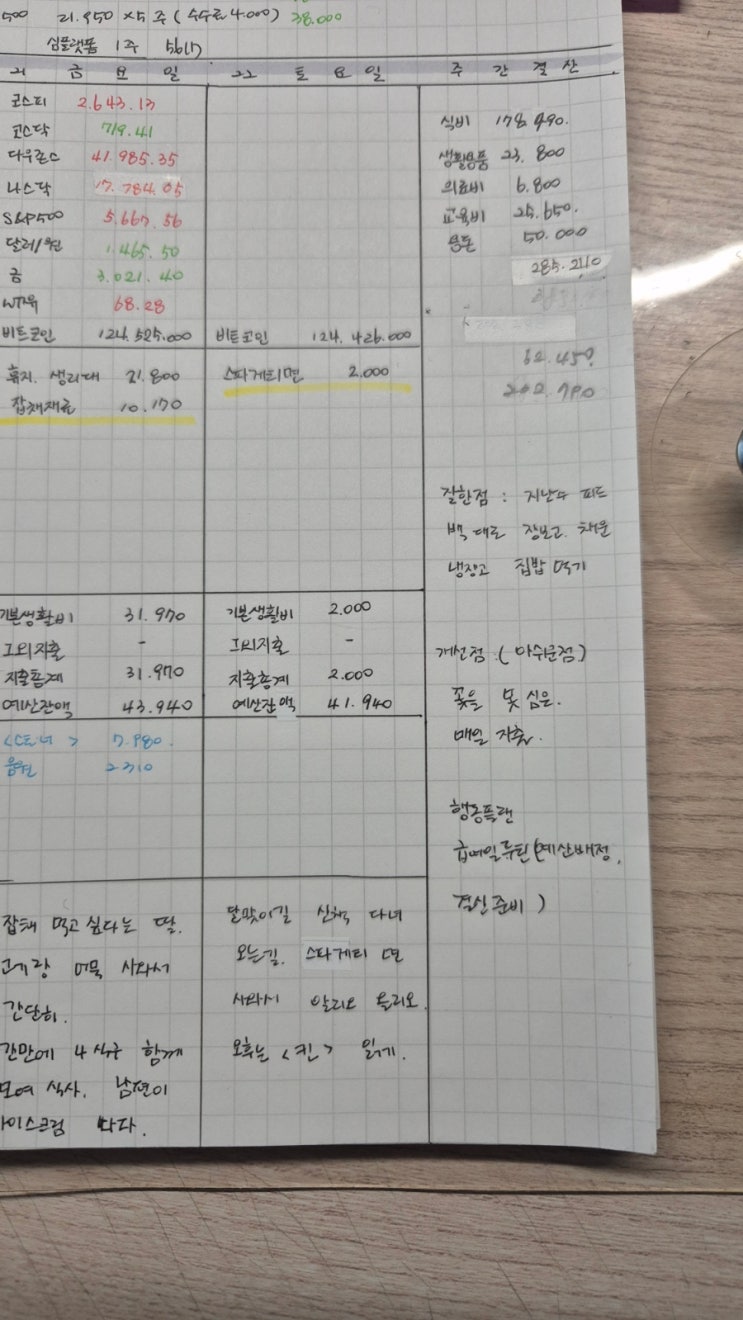 500 21.950 ×5주 (수수료 4.000) 38.000
심플랫폼 1주
21 금요일
코스피 2.643.13
코스닥 719.41
다우존스 41.985.35
나스닥 17.784.05
S&P500 5.667.56
달러/원 1.465.50
금 3.021.40
WTI유 68.28
비트코인 124.525.000
휴지. 생리대 21.800
잡채재료 10.170
기본생활비 31.970
그외지출 -
지출총계 31.970
예산잔액 43.940
<스토너> 7.980.
음원 2310
잡채 먹고싶다는 딸.
고기랑 어묵 사와서
간단히.
간만에 4식구 함께
모여 식사. 남편이
아이스크림 사다.
22 토요일
비트코인 124.426.000
스파게티면 2.000
기본생활비 2.000
그외지출 -
지출총계 2.000
예산잔액 41.940
달맞이길 산책 다녀
오는길. 스파게티 면
사와서 알리오 올리오.
오후는 <킨> 읽기.
주간결산
식비 178.990.
생활용품 23.800
의료비 6.800
교육비 25.650.
용돈 50.000
285.240
62.450
잘한점 : 지난주 피드
백 대로 장보고. 채운
냉장고 집밥 먹기
개선점.(아쉬운점)
꽃을 못 심은.
매일 지출.
행동플랜
급여일루틴(예산배정,
결산준비)